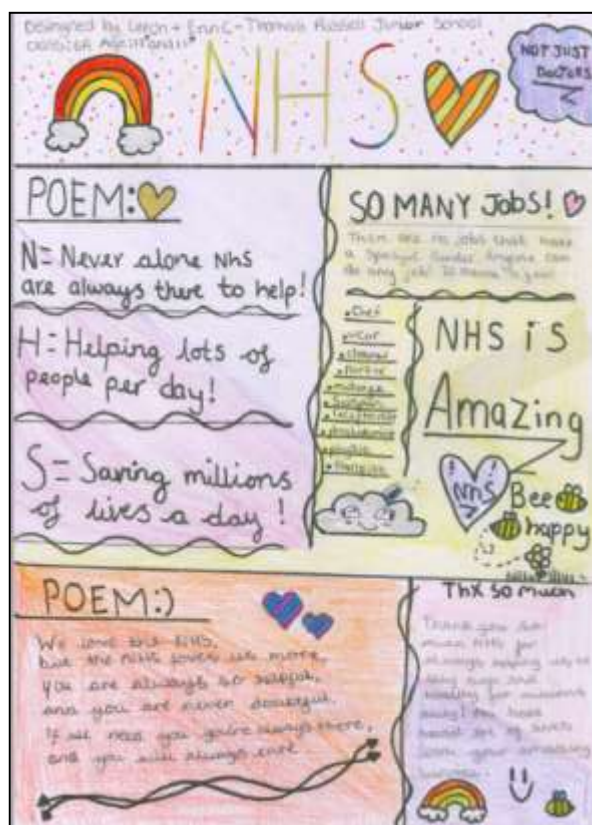 Designed by + Erin C - Thomas Russell Junior School
Age:
NHS
NOT JUST
DOCTORS
POEM:
N= Never alone Nhs
are always there to help!
H= Helping lots of
people per day!
S= Saving millions
of lives a day!
SO MANY JOBS!
There are no jobs that have
a specific Gender Anyone can
do any job!
• Chef
• cleaner
• porter
• Surgeon
• receptionist
• Therapist
NHS is
Amazing
NHS
Bee
happy
POEM:)
We love the NHS,
but the NHS loves us more,
you are always so helpful,
and you are never doubtful.
If we need you you're always there,
and you will always care
Thx so much
Thank you so
much NHS for
always helping us,
your amazing